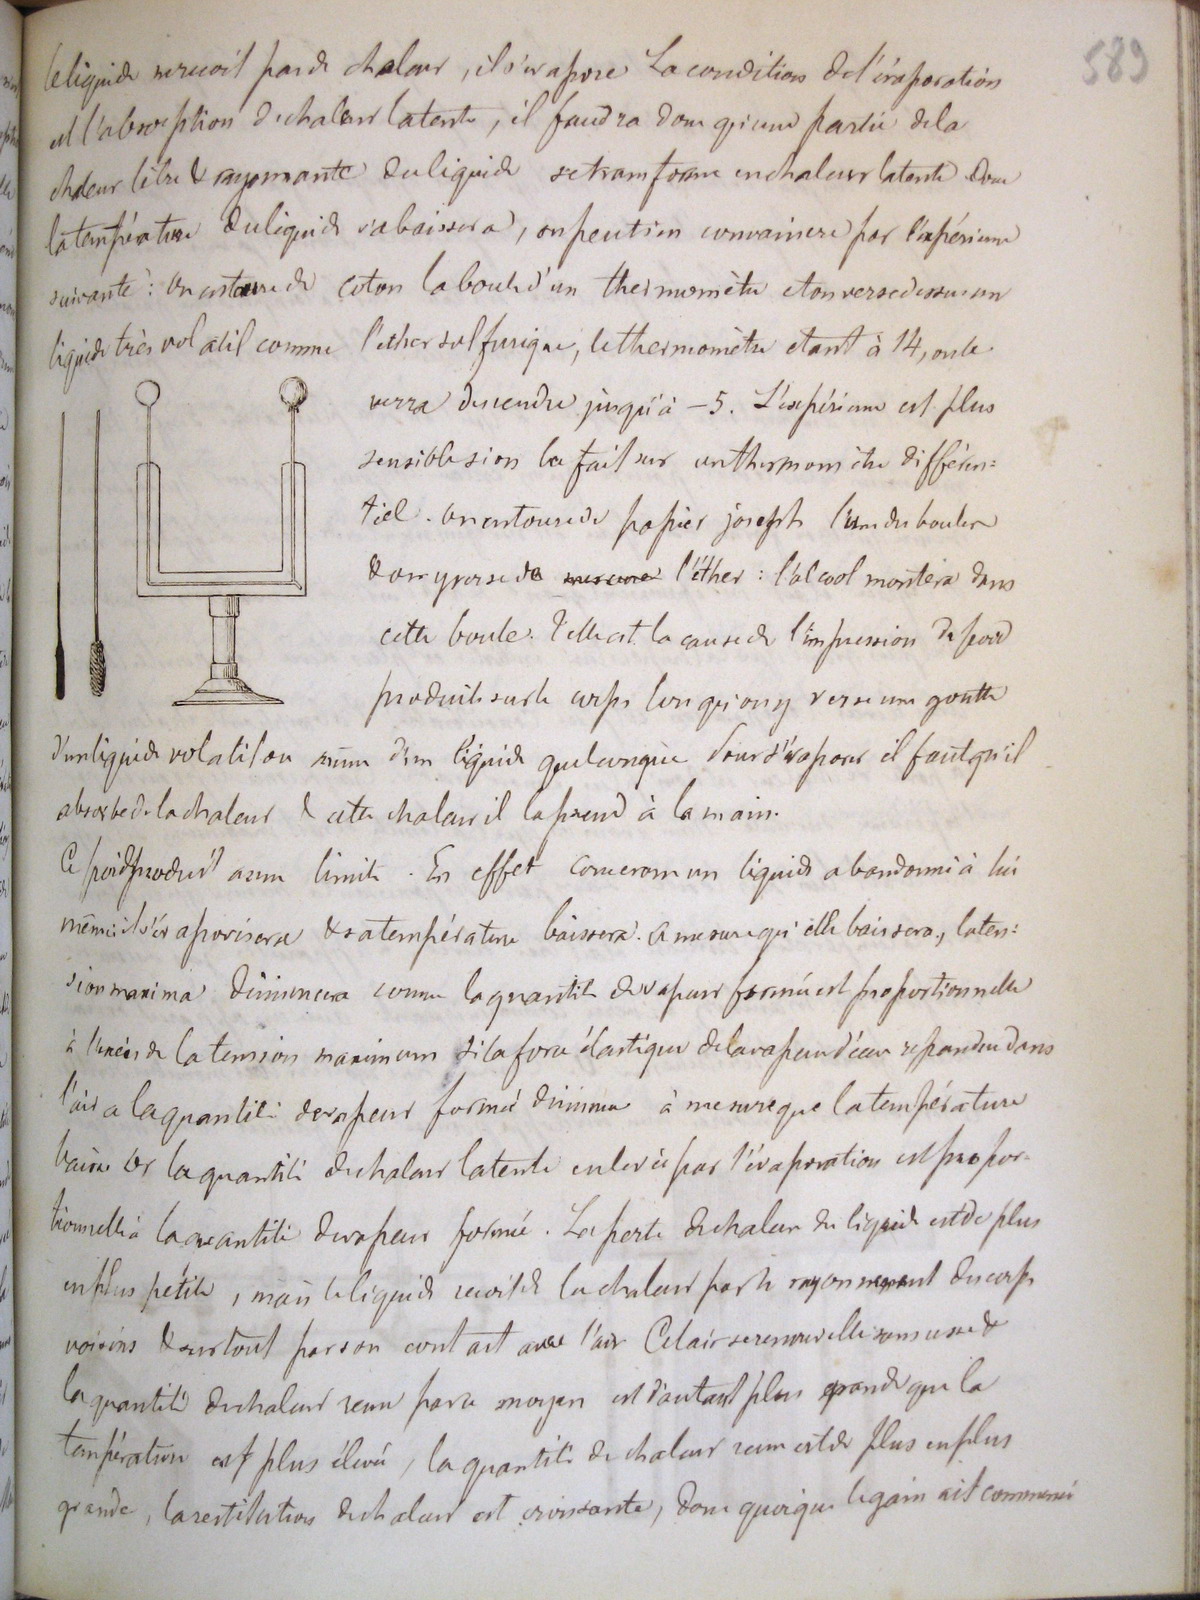 589
le liquide ne recoit pas de chaleur, il s'evapore La condition de l'évaporation
est l'absorption de chaleur latente, il faudra donc qu'une partie de la
chaleur libre & rayonnante du liquide se transforme en chaleur latente donc
la température du liquide s'abaissera, on peut s'en convaincre par l'expérience
suivante : on entoure de coton la boule d'un thermomètre et on verse dessus un
liquide très volatil comme l'ether sulfurique, le thermomètre etant à 14, on le
verra descendre jusqu'à -5. L'expérience est plus
sensible si on la fait sur un thermomètre différen=
tiel. on entoure de papier joseph l'une des boules
& on y verse de l'éther : l'alcool montera dans
cette boule. Telle est la cause de l'impression de froid
produite sur le corps lorsqu'on y verse une goutte
d'un liquide volatil ou même d'un liquide quelconque Pour s'évaporer il faut qu'il
absorbe de la chaleur & cette chaleur il la prend à la main.
Ce froid produit a une limite. En effet concevons un liquide abandonné à lui
même il s'évaporisera & sa température baissera. A mesure qu'elle baissera, la ten=
sion maxima diminuera comme la quantité de vapeur formée est proportionnelle
à l'excès de la tension maximum sur la force élastique de la vapeur d'eau repandue dans
l'air la quantité de vapeur formée diminue à mesure que la température
baisse or la quantité de chaleur latente enlevée par l'évaporation est propor-
tionnelle à la quantité de vapeur formée. La perte de chaleur du liquide est de plus
en plus petite, mais le liquide recoit de la chaleur par le rayonnement des corps
voisins & surtout par son contact avec l'air Cet air se renouvelle sans cesse &
la quantité de chaleur recue par ce moyen est d'autant plus grande que la
température est plus élevée, la quantité de chaleur recue est de plus en plus
grande, la restitution de chaleur est croissante, donc quoique le gain ait commencé